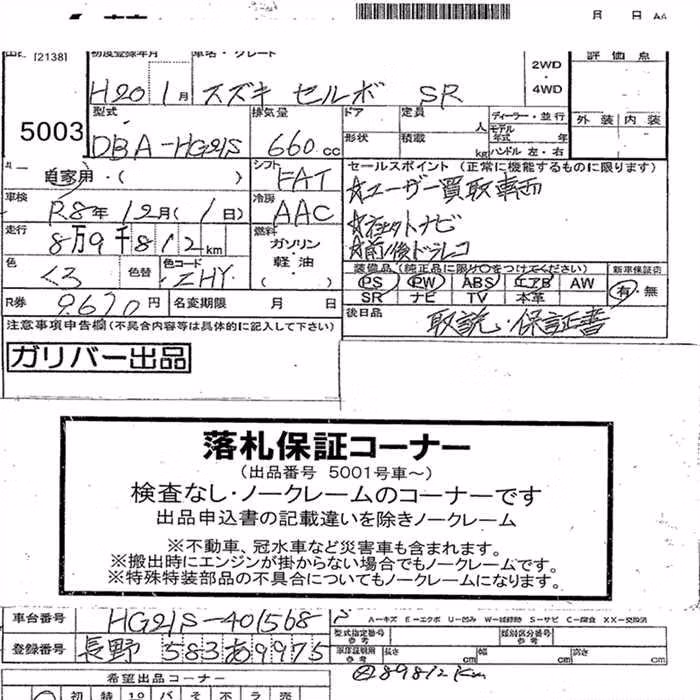 月 日 A4
[2138] 初度登録年月 車名・グレード 評価点
H20 1月 スズキ セルボ SR 2WD・4WD
5003 型式 排気量 ドア 定員 人 ディーラー・並行 外装 内装
DBA-HG21S 660cc 形状 積載 kg モデル年式 年 ハンドル 左・右
自家用・( ) シフト FAT セールスポイント (正常に機能するものに限ります)
車検 R8年12月(1日) 冷房 AAC ☆ユーザー買取車両
☆社外ナビ
走行 8万9千812km 燃料 ガソリン 軽油 ( ) ☆前後ドラレコ
色 クロ 色替 色コード ZHY 装備品(純正品に限り○をつけてください) 新車保証書
PS PW ABS エアB AW 有・無
SR ナビ TV 本革
R券 9.670円 名変期限 月 日 後日品 取説・保証書
注意事項申告欄(不具合内容等は具体的に記入して下さい)
ガリバー出品
落札保証コーナー
(出品番号 5001号車～)
検査なし・ノークレームのコーナーです
出品申込書の記載違いを除きノークレーム
※不動車、冠水車など災害車も含まれます。
※搬出時にエンジンが掛からない場合でもノークレームです。
※特殊特装部品の不具合についてもノークレームになります。
車台番号 HG21S-401568
A－キズ E－エクボ U－凹み W－補修跡 S－サビ C－腐食 XX－交換済
型式指定番号 参考 類別区分番号 参考
登録番号 長野 583 あ 9975 車庫証明用 参考 長さ cm 幅 cm 高さ cm
89812km
希望出品コーナー